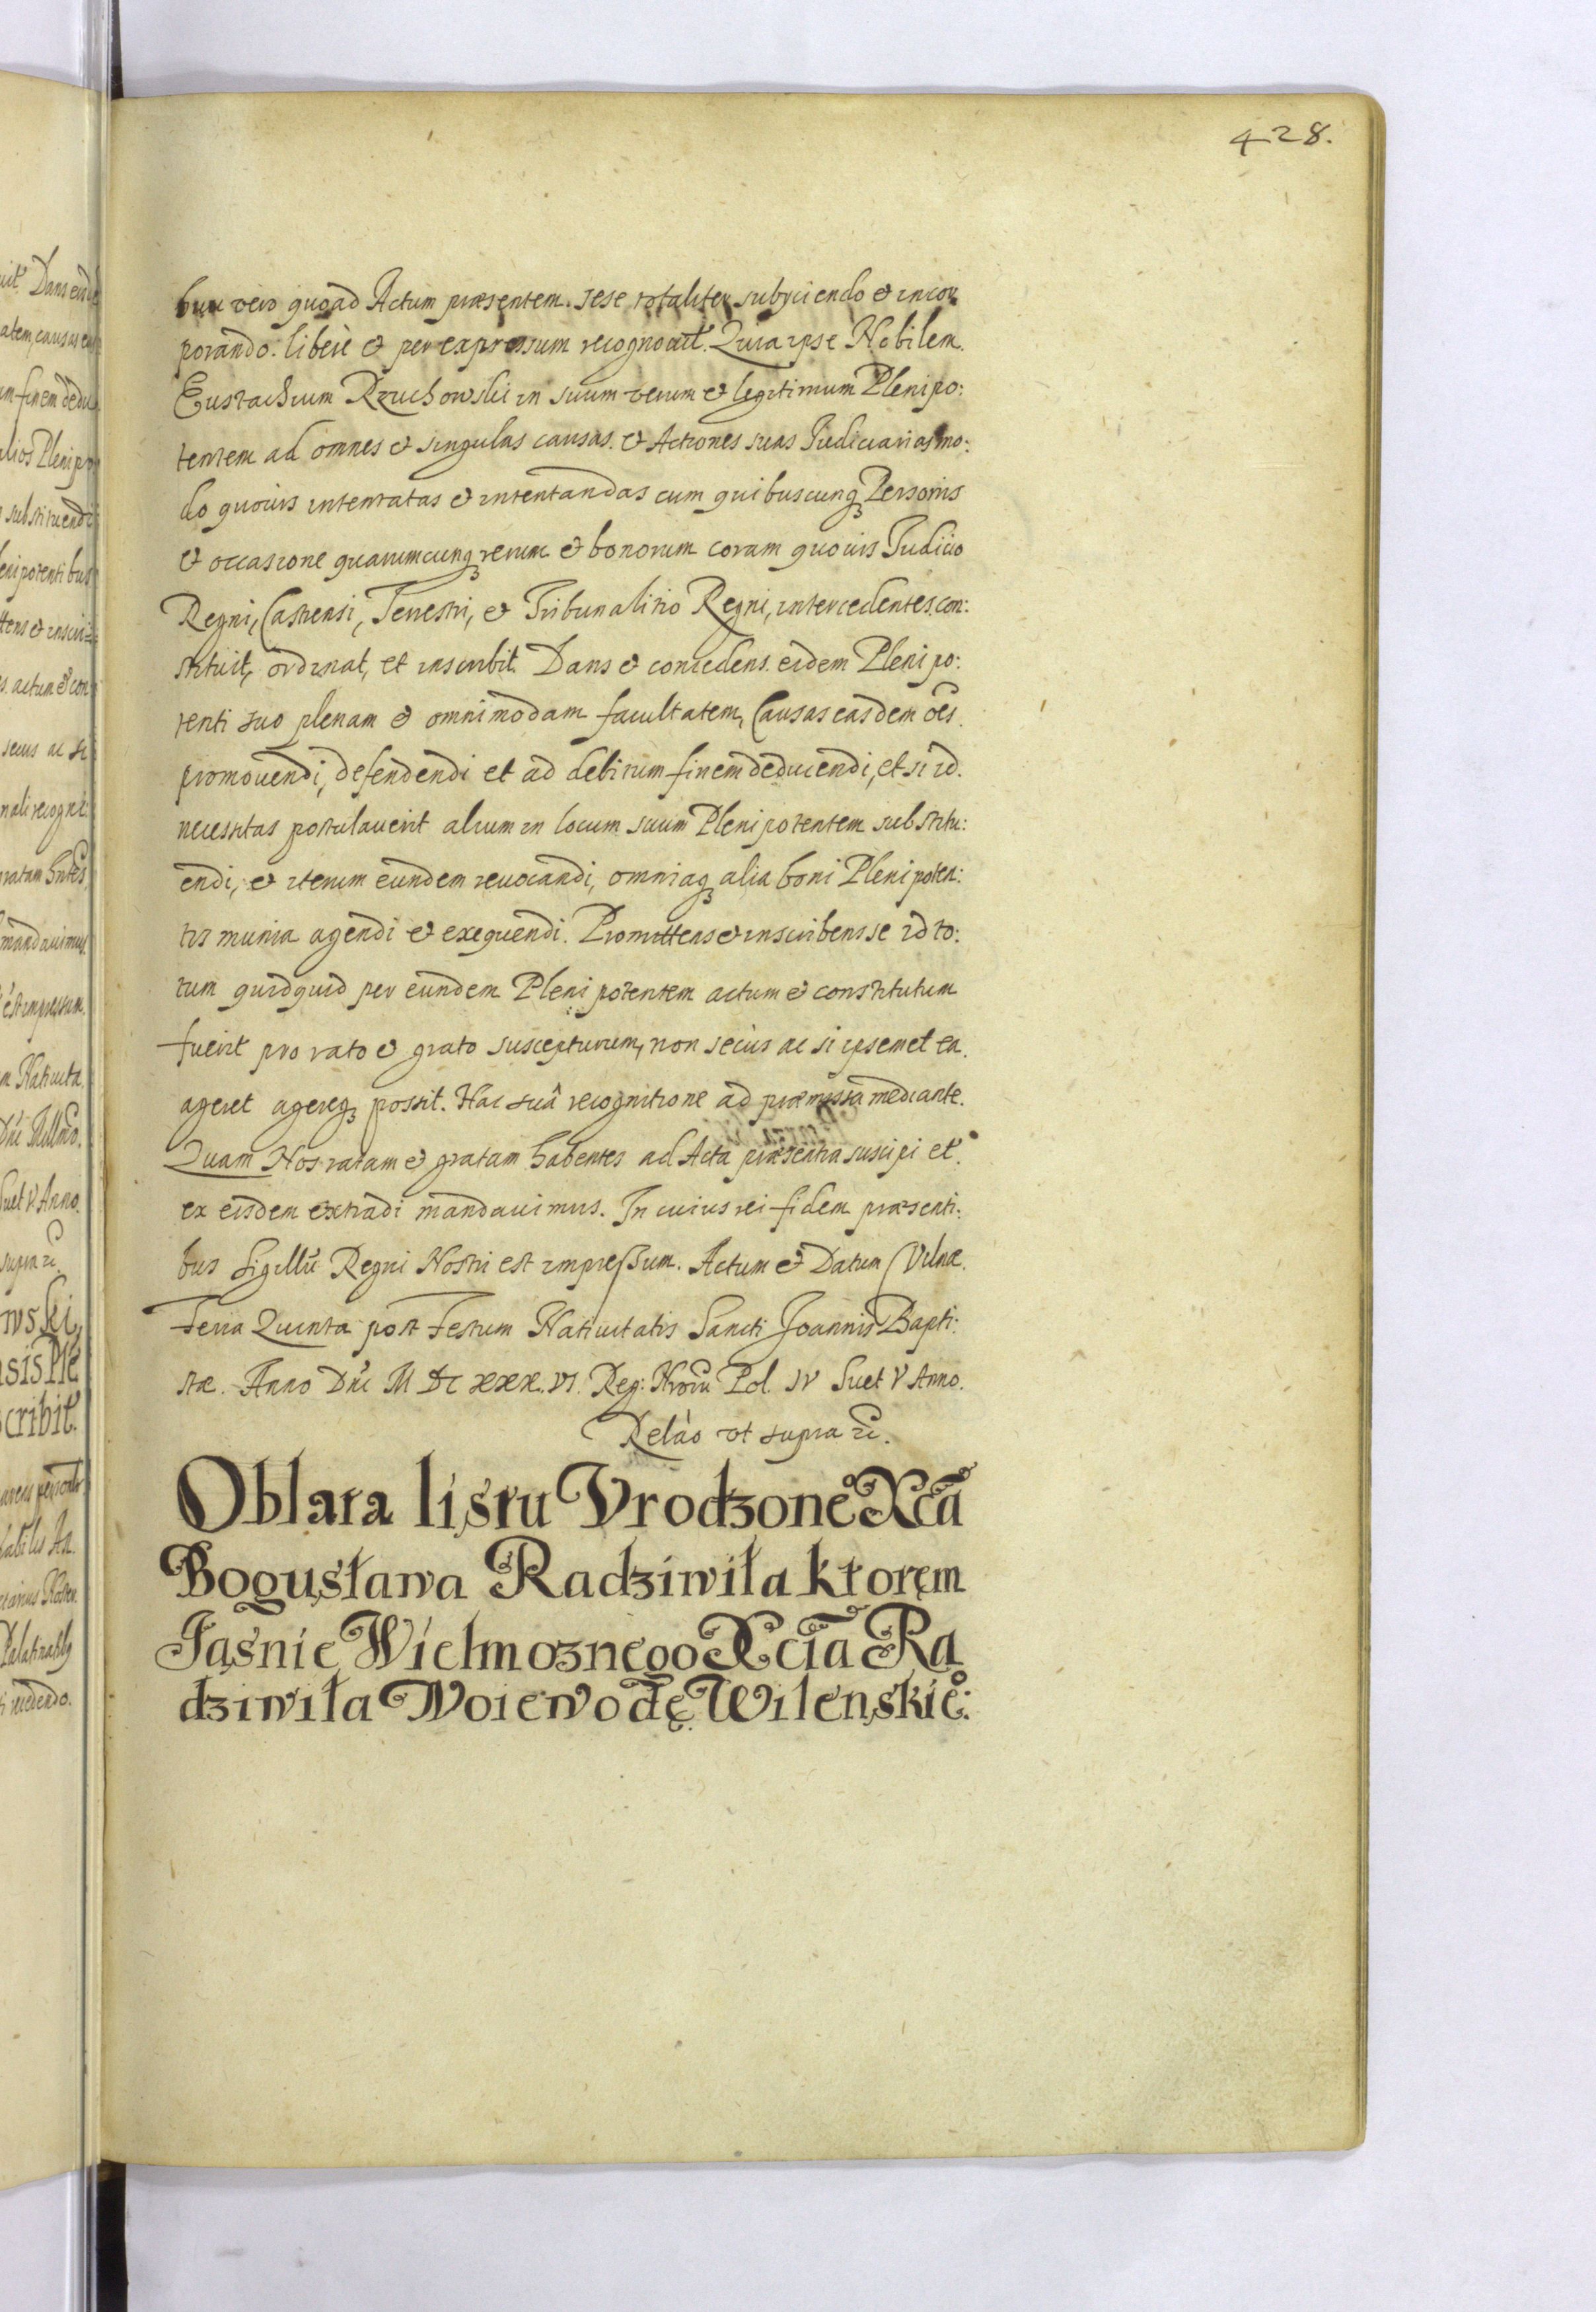 428.
huic vero quoad Actum præsentem. sese totaliter subyciendo & incor
porando. liberè & per expressum recognouit. Quia ipse Nobilem.
Eustachium Rzuchowski in suum verum & legitimum Plenipo:
tentem ad omnes & singulas causas. & Actiones suas Iudiciarias mo:
do quouis intentatas & intentandas cum quibuscunq Personis
& occasione quarumcunq rerum & bonorum coram quouis Iudicio
Regni, Castrensi, Terrestri, & Tribunalitio Regni, intercedentes. con:
stituit, ordinat, et inscribit. Dans & concedens. eidem Plenipo:
tenti suo plenam & omnimodam facultatem, Causas easdem oẽs.
promouendi, defendendi et ad debitum finem deducendi, et si id.
necessitas postulauerit alium in locum suum Plenipotentem substitu:
endi, & iterum eundem reuocandi, omniaq alia boni Plenipoten:
tis munia agendi & exequendi. Promittens & inscribens se id to:
tum quidquid per eundem Plenipotentem actum & constitutum
fuerit pro rato & grato suscepturum, non secùs ac si ipsemet ea.
ageret agereq possit. Hac suâ recognitione ad præmissa mediante.
Quam Nos ratam & gratam habentes ad Acta præsentia suscipi et
ex eisdem extradi mandauimus. In cuius rei fidem præsenti:
bus Sigillũ Regni Nostri est impreſsum. Actum & Datum Vilnæ.
Feria Quinta post Festum Natiuitatis Sancti Joannis Bapti:
stæ. Anno Dñi M DC XXX. VI. Reg: Nrorũ Pol. IV Suet V Anno.
Relào vt supra &c.
Oblata listu Vrodzone° Xcã
Bogusława Radziwiła ktorem
Jaśnie Wielmoznego Xcia Ra
dziwiła Woiewodę Wilenskie°: